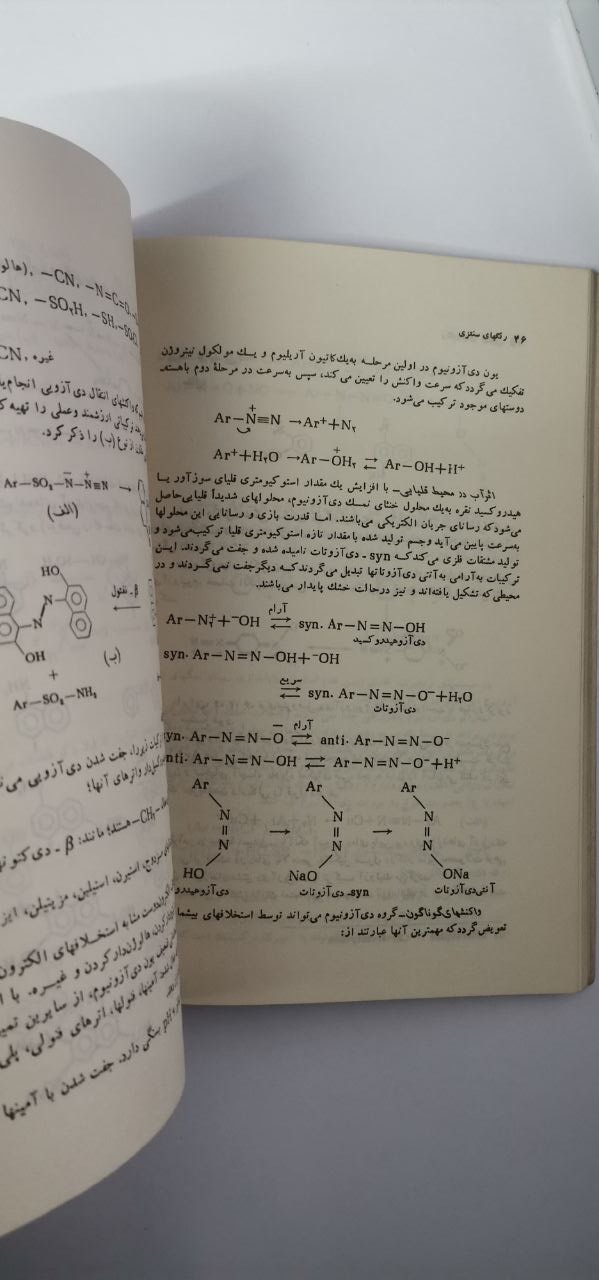 ۴۶ رنگهای سنتزی
یون دی‌آزونیوم در اولین مرحله به‌یك کاتیون آریلیوم و یك مولکول نیتروژن
تفکیك می‌گردد که سرعت واکنش را تعیین می‌کند، سپس به‌سرعت در مرحلهٔ دوم با هسته‌
دوستهای موجود ترکیب می‌شود.
Ar—N⁺≡N → Ar⁺+N₂
Ar⁺+H₂O → Ar—OH₂⁺ ⇌ Ar—OH+H⁺
اثر آب در محیط قلیایی— با افزایش یك مقدار استوکیومتری قلیای سوزآور یا
هیدروکسید نقره به‌یك محلول خنثای نمك دی‌آزونیوم، محلولهای شدیداً قلیایی حاصل
می‌شود که رسانای جریان الکتریکی می‌باشند. اما قدرت بازی و رسانایی این محلولها
به‌سرعت پایین می‌آید وجسم تولید شده با مقدار تازه استوکیومتری قلیا ترکیب می‌شود و
تولید مشتقات فلزی می‌کند که syn - دی‌آزوتات نامیده شده و جفت می‌گردند. این
ترکیبات به‌آرامی به‌آنتی دی‌آزوتاتها تبدیل می‌گردند که دیگر جفت نمی‌گردند و در
محیطی که تشکیل یافته‌اند و نیز درحالت خشك پایدار می‌باشند.
Ar—N₂⁺+⁻OH ⇌ آرام syn. Ar—N=N—OH
دی‌آزوهیدروکسید
syn. Ar—N=N—OH+⁻OH
⇌ سریع syn. Ar—N=N—O⁻+H₂O
دی‌آزوتات
syn. Ar—N=N—O⁻ ⇌ آرام anti. Ar—N=N—O⁻
anti. Ar—N=N—OH ⇌ Ar—N=N—O⁻+H⁺
Ar Ar Ar
N N N
‖ → ‖ → ‖
N N N
HO NaO ONa
دی‌آزوهیدرو syn- دی‌آزوتات آنتی‌دی‌آزوتات
واکنشهای گوناگون— گروه دی‌آزونیوم می‌تواند توسط استخلافهای بیشما
تعویض گردد که مهمترین آنها عبارتند از:
(هالو, —CN, —N=C=O,
CN, —SO₂H, —SH,
غیره CN,
را ذکر کرد.
Ar—SO₂—N⁻—N⁺≡N →
(الف)
HO
N
N
β- نفتول
OH
(ب)
+
Ar—SO₂—NH₂
جفت شدن دی‌آزویی می
واترهای آنها؛
—CH₂— هستند؛ مانند: β - دی کتو
استیرن، استیلبن، مزیتیلن،
استخلافهای الکترون
هالوژن‌دار کردن و غیره. با
یون دی‌آزونیوم، از سایرین
آمینها، فنولها، اترهای فنولی، پلی
بستگی دارد. جفت شدن با آمینها